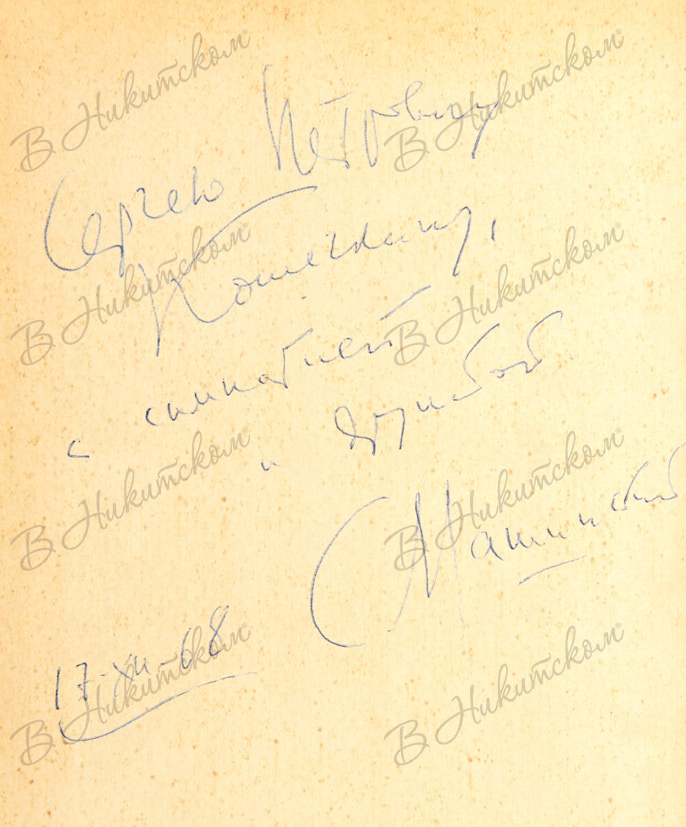 В Никитском® В Никитском®
Сергею Петровичу
Кошечкину,
В Никитском® В Никитском®
с симпатией
и дружбой
В Никитском® В Никитском®
С Машинский
17-XII-68
В Никитском® В Никитском®